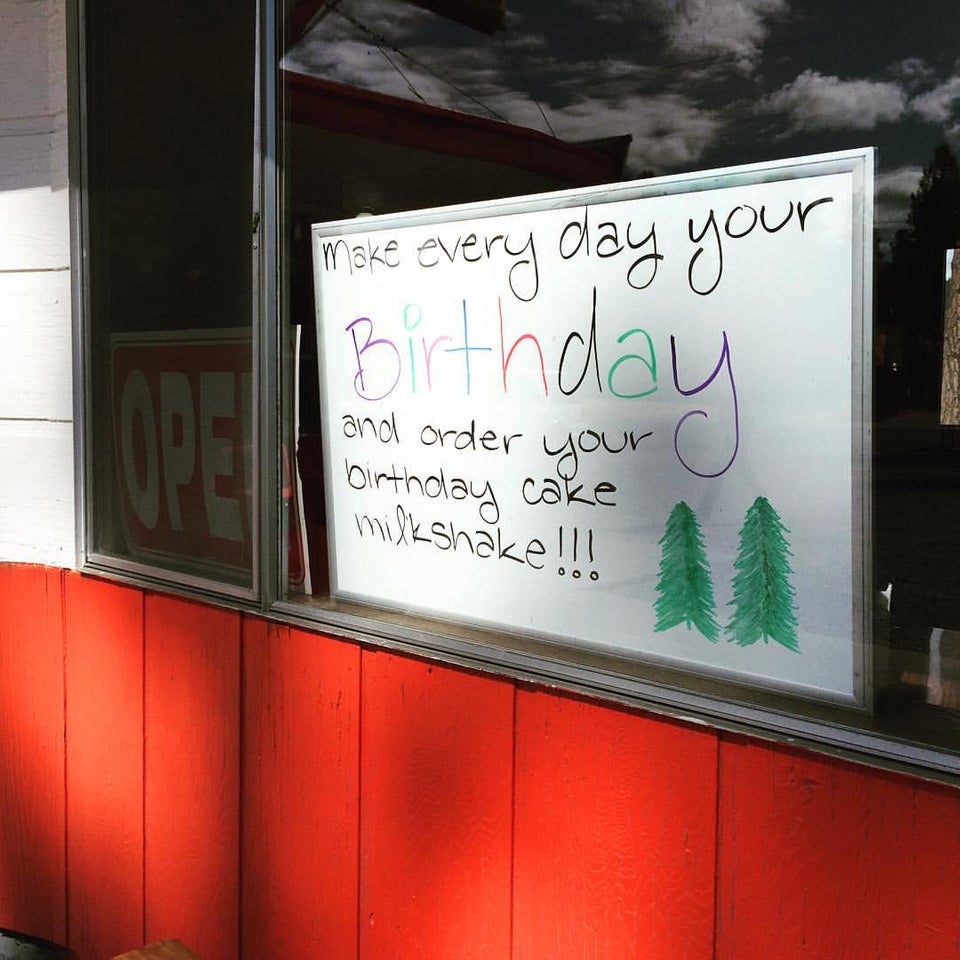 make every day your
Birthday
and order your
birthday cake
milkshake!!!
OPE